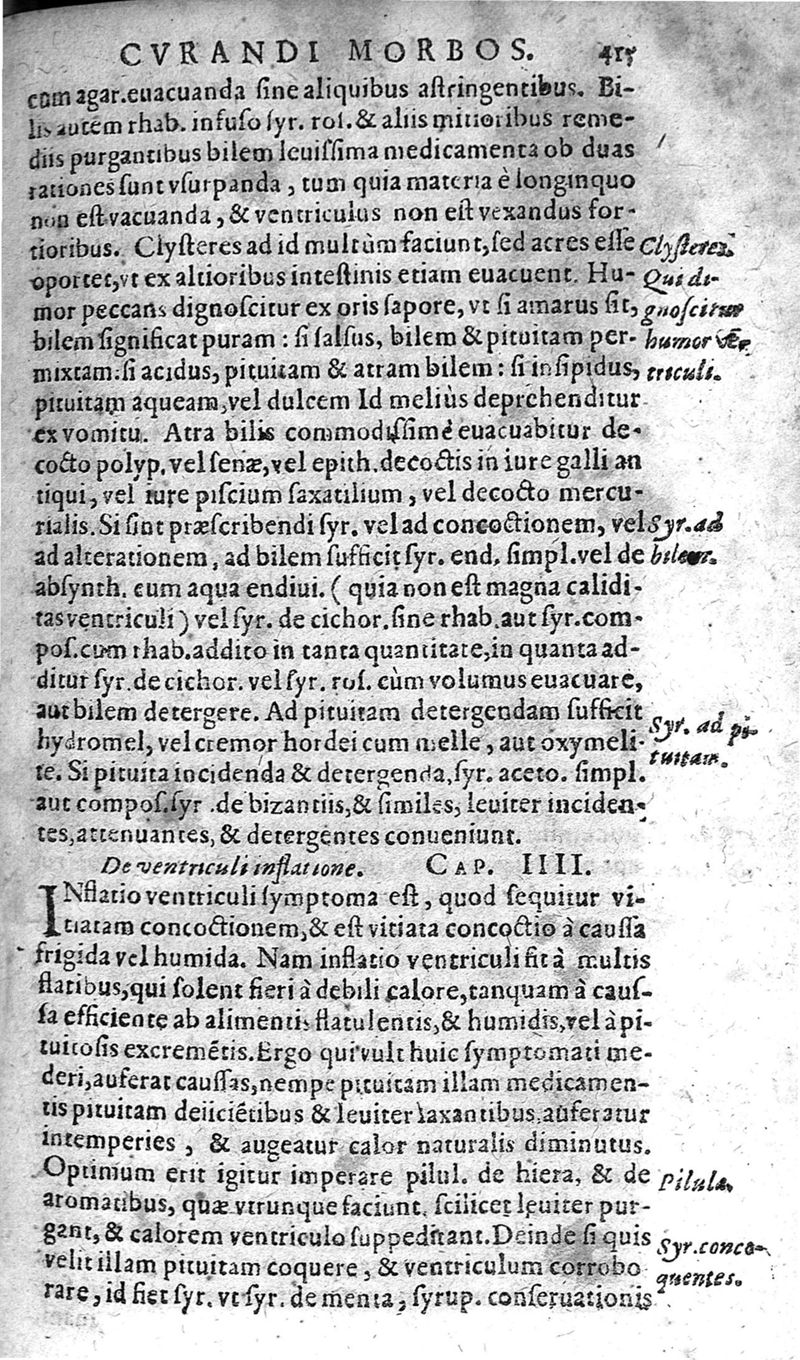 CVRANDI MORBOS. 415
cum agar. euacuanda ſine aliquibus aſtringentibus. Bi-
lis autem rhab. infuſo ſyr. roſ. & aliis mitioribus reme-
diis purgantibus bilem leuiſſima medicamenta ob duas
rationes ſunt vſurpanda, tum quia materia è longinquo
non eſt vacuanda, & ventriculus non eſt vexandus for-
tioribus. Clyſteres ad id multùm faciunt, ſed acres eſſe
Clyſteres.
oportet, vt ex altioribus inteſtinis etiam euacuent. Hu-
Qui di-
mor peccans dignoſcitur ex oris ſapore, vt ſi amarus ſit,
gnoſcitur
bilem ſignificat puram : ſi ſalſus, bilem & pituitam per-
humor vẽ-
mixtam: ſi acidus, pituitam & atram bilem : ſi inſipidus,
triculi.
pituitam aqueam, vel dulcem Id meliùs deprehenditur
ex vomitu. Atra bilis commodiſſimè euacuabitur de-
cocto polyp. vel ſenæ, vel epith. decoctis in iure galli an
tiqui, vel iure piſcium ſaxatilium, vel decocto mercu-
rialis. Si ſint præſcribendi ſyr. vel ad concoctionem, vel
Syr. ad
ad alterationem, ad bilem ſufficit ſyr. end. ſimpl. vel de
bilem.
abſynth. cum aqua endiui. ( quia non eſt magna calidi-
tas ventriculi ) vel ſyr. de cichor. ſine rhab. aut ſyr. com-
poſ. cum rhab. addito in tanta quantitate, in quanta ad-
ditur ſyr. de cichor. vel ſyr. roſ. cùm volumus euacuare,
aut bilem detergere. Ad pituitam detergendam ſufficit
Syr. ad pi-
hydromel, vel cremor hordei cum melle, aut oxymeli-
tuitam.
te. Si pituita incidenda & detergenda, ſyr. aceto. ſimpl.
aut compoſ. ſyr .de bizantiis, & ſimiles, leuiter inciden-
tes, attenuantes, & detergentes conueniunt.
De ventriculi inflatione. CAP. IIII.
INflatio ventriculi ſymptoma eſt, quod ſequitur vi-
tiatam concoctionem, & eſt vitiata concoctio à cauſſa
frigida vel humida. Nam inflatio ventriculi fit à multis
flatibus, qui ſolent fieri à debili calore, tanquam à cauſ-
ſa efficiente ab alimentis flatulentis, & humidis, vel à pi-
tuitoſis excremẽtis. Ergo qui vult huic ſymptomati me-
deri, auferat cauſſas, nempe pituitam illam medicamen-
tis pituitam deiiciẽtibus & leuiter laxantibus, auferatur
intemperies, & augeatur calor naturalis diminutus.
Optimum erit igitur imperare pilul. de hiera, & de
Pilulæ.
aromatibus, quæ vtrunque faciunt, ſcilicet leuiter pur-
gant, & calorem ventriculo ſuppeditant. Deinde ſi quis
Syr. conco-
velit illam pituitam coquere, & ventriculum corrobo
quentes.
rare, id fiet ſyr. vt ſyr. de menta, ſyrup. conſeruationis